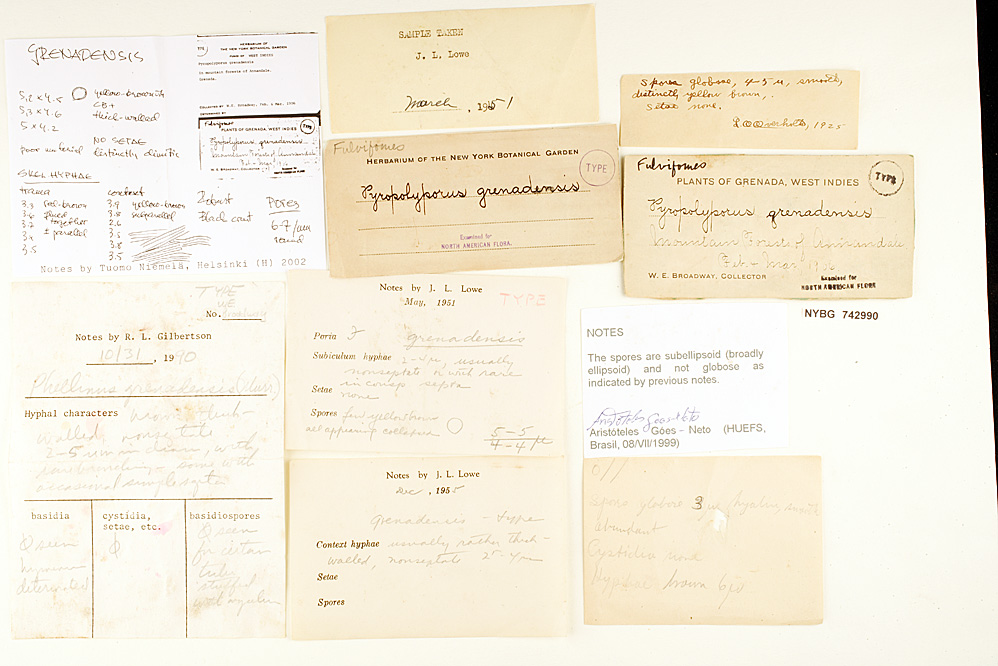 GRENADENSIS
5,2 x 4.5 yellow-brownish
5,3 x 4.6 CB+
5 x 4.2 thick-walled
NO SETAE
poor material distinctly dimitic
SKEL HYPHAE
trama context
3.3 3.9 yellow-brown
3.6 glued 3.8 subparallel
3.2 together 2.6
3.4 ± parallel 3.5
3.5 3.8
3.5
Robust
Black cont
Pores
6-7/mm
round
Notes by Tuomo Niemelä, Helsinki (H) 2002
HERBARIUM OF
THE NEW YORK BOTANICAL GARDEN
PLANTS OF WEST INDIES
Pyropolyporus grenadensis
In mountain forests of Annandale.
Grenada.
COLLECTED BY W.E. BROADWAY, Feb. & Mar. 1906
DETERMINED BY
Fulvifomes
PLANTS OF GRENADA, WEST INDIES
TYPE
Pyropolyporus grenadensis
Mountain Forest of Annandale
Feb - Mar 1906
W. E. BROADWAY, COLLECTOR
SAMPLE TAKEN
J. L. Lowe
March, 1951
Spores globose, 4-5 µ, smooth,
distinctly yellow brown,.
Setae none.
L.O. Overholts, 1925
Fulvifomes
HERBARIUM OF THE NEW YORK BOTANICAL GARDEN
TYPE
Pyropolyporus grenadensis
Examined for
NORTH AMERICAN FLORA.
Fulvifomes
TYPE
PLANTS OF GRENADA, WEST INDIES
Pyropolyporus grenadensis
Mountain Forest of Annandale,
Feb - Mar 1906
W. E. BROADWAY, COLLECTOR
Examined for
NORTH AMERICAN FLORA
NYBG 742990
TYPE
WE
No. Broadway
Notes by R. L. Gilbertson
10/31, 1990
Phellinus grenadensis (Murr.)
Hyphal characters brown, thick-
walled, nonseptate
2-5 µm in diam, with
rare branching, some with
occasional simple septa
basidia
Ø seen
hymenium
deteriorated
cystidia,
setae, etc.
Ø
basidiospores
Ø seen
for certain
Notes by J. L. Lowe
May, 1951
TYPE
Poria F grenadensis
Subiculum hyphae 2-4µ, usually
nonseptate or with rare
in consp septa
Setae none
Spores few yellow brown
all appearing collapsed
5-5
4-4 µ
NOTES
The spores are subellipsoid (broadly
ellipsoid) and not globose as
indicated by previous notes.
Aristóteles Góes-Neto
Aristóteles Góes - Neto (HUEFS,
Brasil, 08/VII/1999)
Notes by J. L. Lowe
Dec, 1955
grenadensis - type
Context hyphae usually rather thick-
walled, nonseptate 2-4µ
Setae
Spores
spores globose 3 µ hyalin, smooth
abundant
Cystidia none
Hyphae brown 6µ